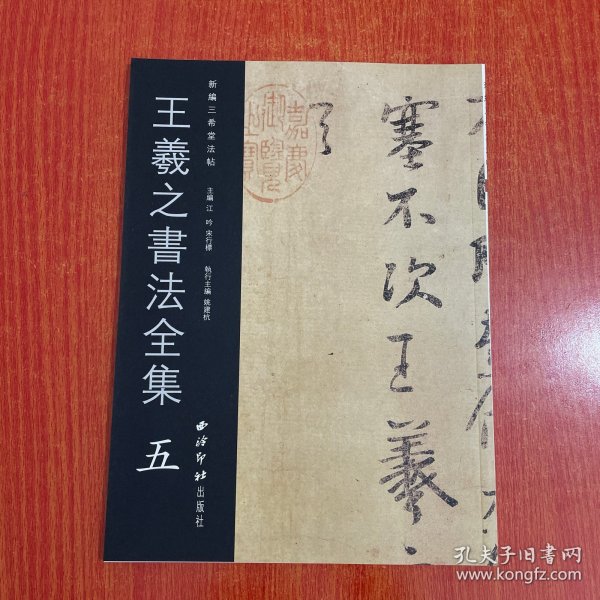 新編三希堂法帖
王羲之書法全集 五
主編 江吟 宋行標
執行主編 姚建杭
西泠印社出版社
嘉慶御覽之寶
蹇不次王羲
孔夫子旧書网
www.kongfz.com